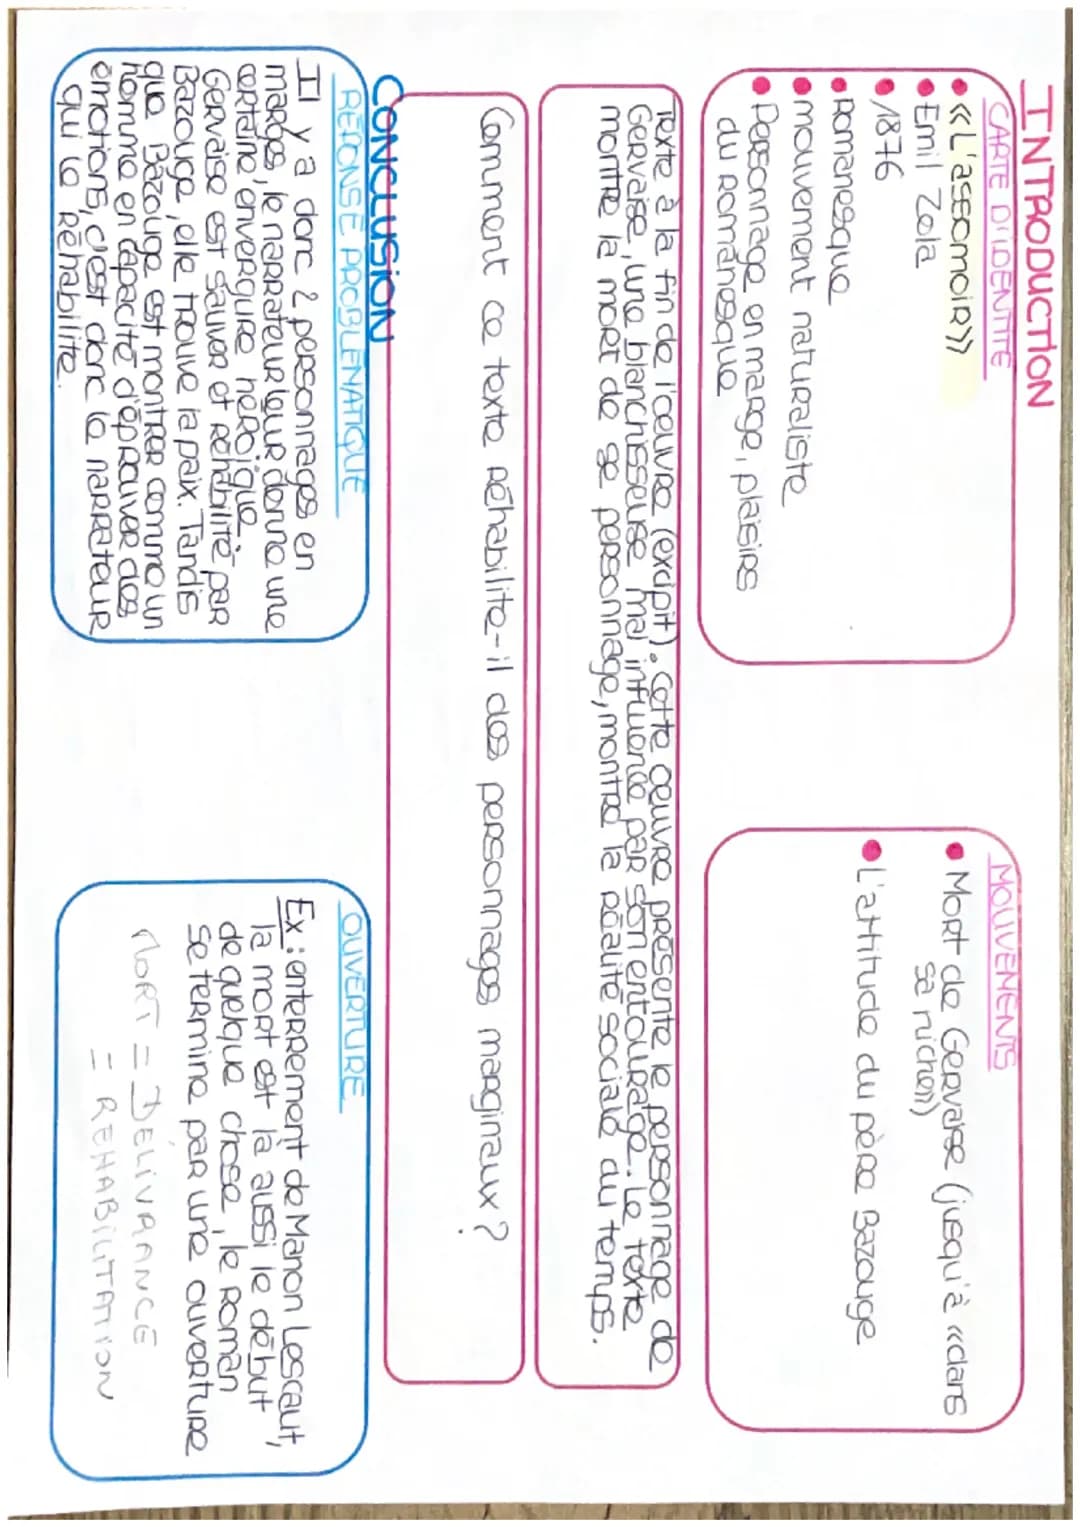 INTRODUCTION
CARTE D'IDENTITE
«L'assomoir»
Emil Zola
1876
Romanesque
mouvement naturaliste
Personnage en marge, plaisirs
du romanesque
MOUVEMENTS
Mort de Gervaise (jusqu'à «dans
sa niche»)
L'attitude du père Bazouge
Texte à la fin de l'oeuvre (excipit). Cette oeuvre présente le personnage de
Gervaise, une blanchisseuse mal influencé par son entourage. Le texte
montre la mort de se personnage, montre la réalité sociale du temps.
Comment ce texte réhabilite-il des personnages marginaux?
CONCLUSION
REPONSE PROBLEMATIQUE
Il y a donc 2 personnages en
marges, le narrateur leur donne une
certaine envergure héroïque.
Gervaise est sauver et réhabilité par
Bazouge, elle trouve la paix. Tandis
que Bazouge est montrer comme un
homme en capacité d'éprouver des
émotions, c'est donc le narrateur
qui le réhabilite.
OUVERTURE
Ex: enterrement de Manon Lescaut,
la mort est là aussi le début
de quelque chose, le roman
se termine par une ouverture
MORT = DÉLIVRANCE
= REHABILITATION